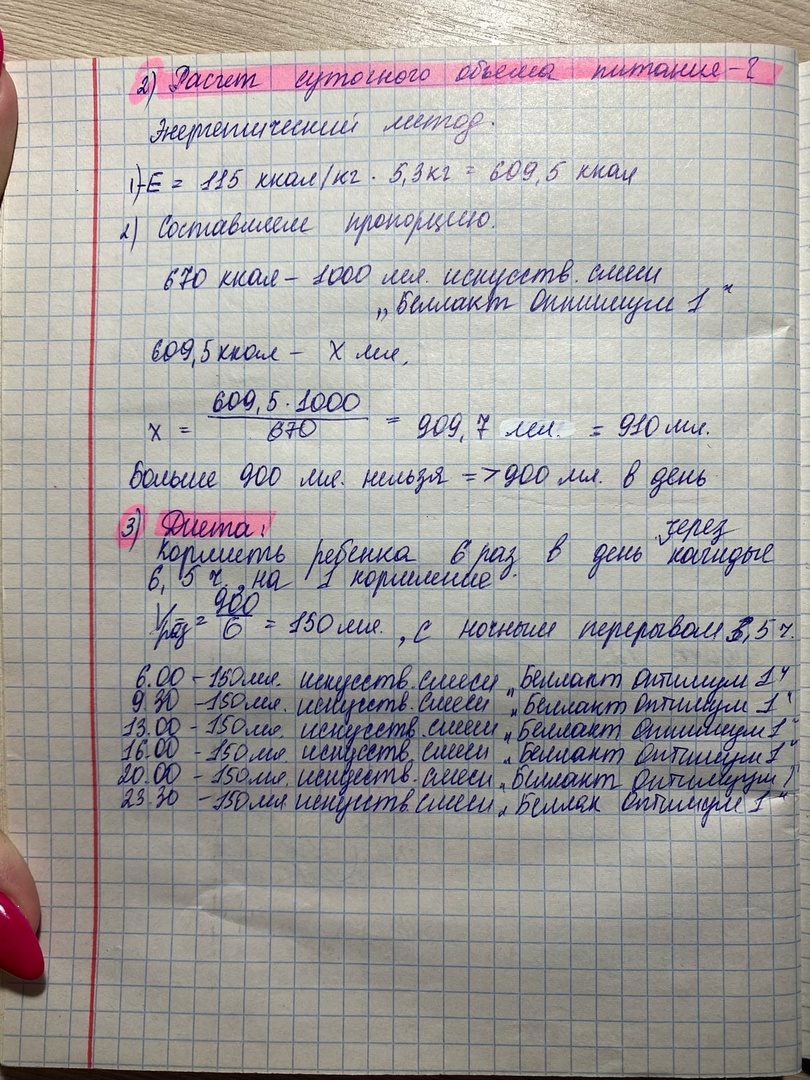 2) Расчет суточного объема питания-?
Энергетический метод.
1) E = 115 ккал/кг · 5,3кг = 609,5 ккал
2) Составляем пропорцию.
670 ккал – 1000 мл. искусств. смеси
„Беллакт Оптимум 1"
609,5 ккал – X мл.
X = 609,5·1000 / 670 = 909,7 мл. = 910 мл.
Больше 900 мл. нельзя => 900 мл. в день
3) Диета:
Кормить ребенка 6 раз в день через каждые
6,5 ч, на 1 кормление
V раз = 900 / 6 = 150 мл., с ночным перерывом 6,5 ч.
6.00 – 150 мл. искусств. смеси „Беллакт Оптимум 1"
9.30 – 150 мл. искусств. смеси „Беллакт Оптимум 1"
13.00 – 150 мл. искусств. смеси „Беллакт Оптимум 1"
16.00 – 150 мл. искусств. смеси „Беллакт Оптимум 1"
20.00 – 150 мл. искусств. смеси „Беллакт Оптимум 1
23.30 – 150 мл искусств. смеси „Беллак Оптимум 1"